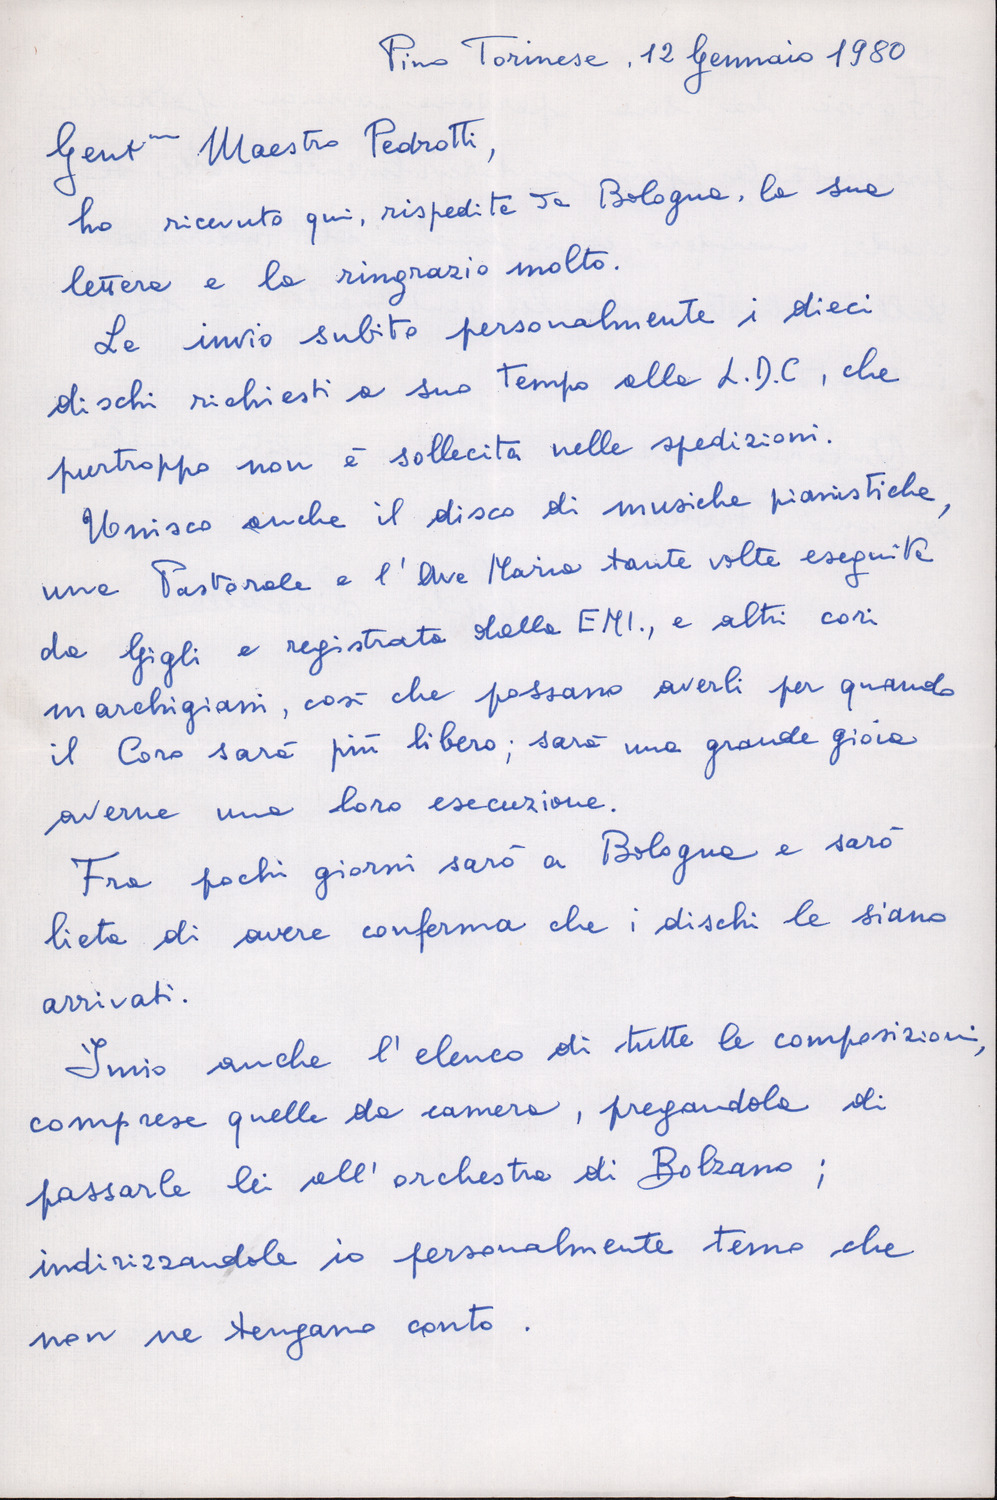 Pino Torinese, 12 Gennaio 1980
Gent.mo Maestro Pedrotti,
ho ricevuto qui, rispedita da Bologna, la sua
lettera e la ringrazio molto.
Le invio subito personalmente i dieci
dischi richiesti a suo tempo alla L.D.C, che
purtroppo non è sollecita nelle spedizioni.
Unisco anche il disco di musiche pianistiche,
una Pastorale e l'Ave Maria tante volte eseguita
da Gigli e registrata dalla EMI., e altri cori
marchigiani, così che possano averli per quando
il Coro sarà più libero; sarà una grande gioia
averne una loro esecuzione.
Fra pochi giorni sarò a Bologna e sarò
lieta di avere conferma che i dischi le siano
arrivati.
Invio anche l'elenco di tutte le composizioni,
comprese quelle da camera, pregandola di
passarle lei all'orchestra di Bolzano;
indirizzandole io personalmente temo che
non ne tengano conto.